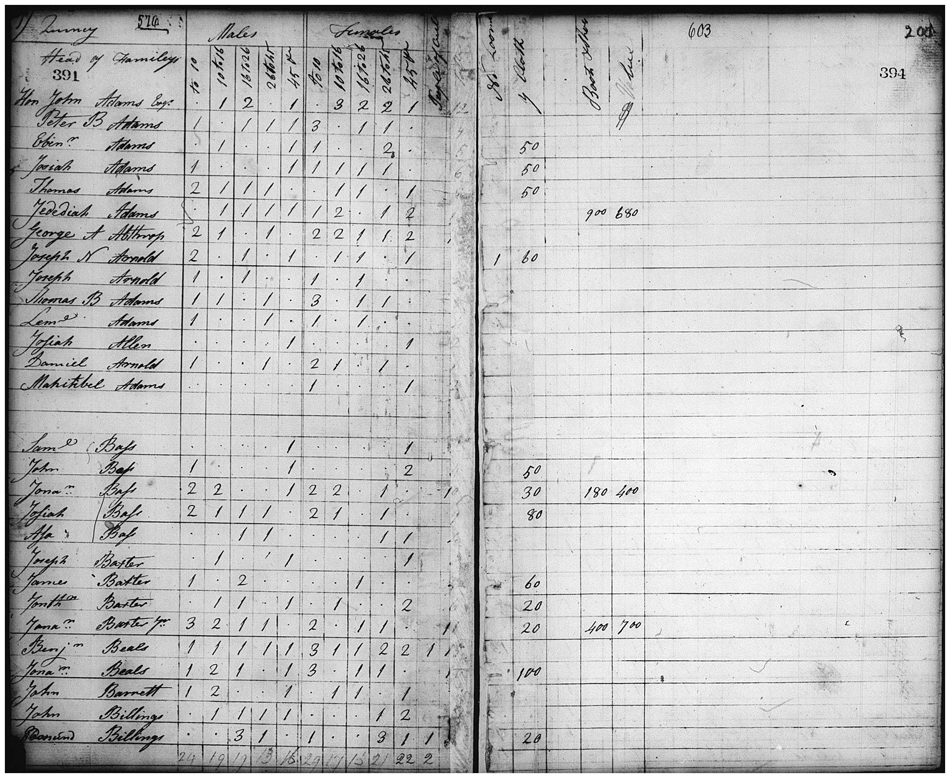 Quincy 574 Males Females 603 201
Head of Familys to 10 10 to 16 16 to 26 26 to 45 45 to 10 10 to 16 16 to 26 26 to 45 45 No. Looms y Cloth Boots Shoes
391 394
Hon John Adams Esqr . 1 2 . 1 . 3 2 2 1
Peter B Adams 1 . 1 1 1 3 . 1 1 .
Ebenr Adams . 1 . . 1 1 . . 2 . 50
Josiah Adams 1 . . . 1 1 1 1 1 . 50
Thomas Adams 2 1 1 1 . . 1 1 . 1 50
Jedediah Adams . 1 1 1 1 1 2 . 1 2 900 680
George A Allthrop 2 1 . 1 . 2 2 1 1 2 1
Joseph N Arnold 2 . 1 . 1 . 1 1 . 1 1 60
Joseph Arnold 1 . 1 . . 1 . 1 . .
Thomas B Adams 1 1 . 1 . 3 . 1 1 .
Leml Adams 1 . . 1 . 1 . 1 . .
Josiah Allen . . . . 1 . . . . 1
Daniel Arnold 1 . . 1 . 2 1 . 1 .
Mahitibel Adams . . . . . 1 . . . 1
Saml Bass . . . . 1 . . . . 1
John Bass 1 . . . 1 . . . . 2 50
Jonan Bass 2 2 . . 1 2 2 . 1 . 1 30 180 400
Josiah Bass 2 1 1 1 . 2 1 . 1 . 80
Asa Bass . . 1 1 . . . . 1 1
Joseph Baxter . 1 . 1 1 . . . . 1
James Baxter 1 . 2 . . . . 1 . . 60
Jonthan Baxter . 1 1 . 1 . 1 . . 2 20
Jonan Baxter Jr 3 2 1 1 . 2 . 1 1 . 1 20 400 700
Benjn Beals 1 1 1 1 1 3 1 1 2 2 1 1
Jonan Beals 1 2 1 . 1 3 . 1 1 . 1 100
John Barrett 1 2 . . 1 . 1 1 . 1
John Billings . 1 1 1 1 . . . 1 2
Edmund Billings . . 3 1 . 1 . . 3 1 1 20
24 19 19 13 16 29 17 15 21 22 2